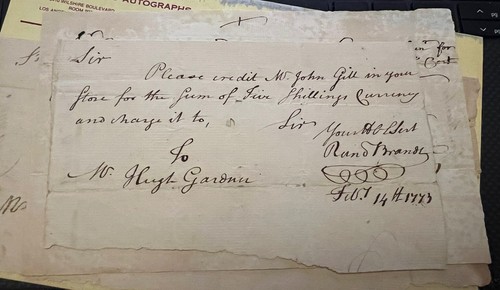 AUTOGRAPHS
WILSHIRE BOULEVARD
ROOM
LOS
Sir
Please credit Mr. John Gill in your
Store for the Sum of Five Shillings Currency
and charge it to, Sir
Your H Ob Sert
Rand Brandt
To
Mr. Hugh Gardner
Feb. 14th 1773